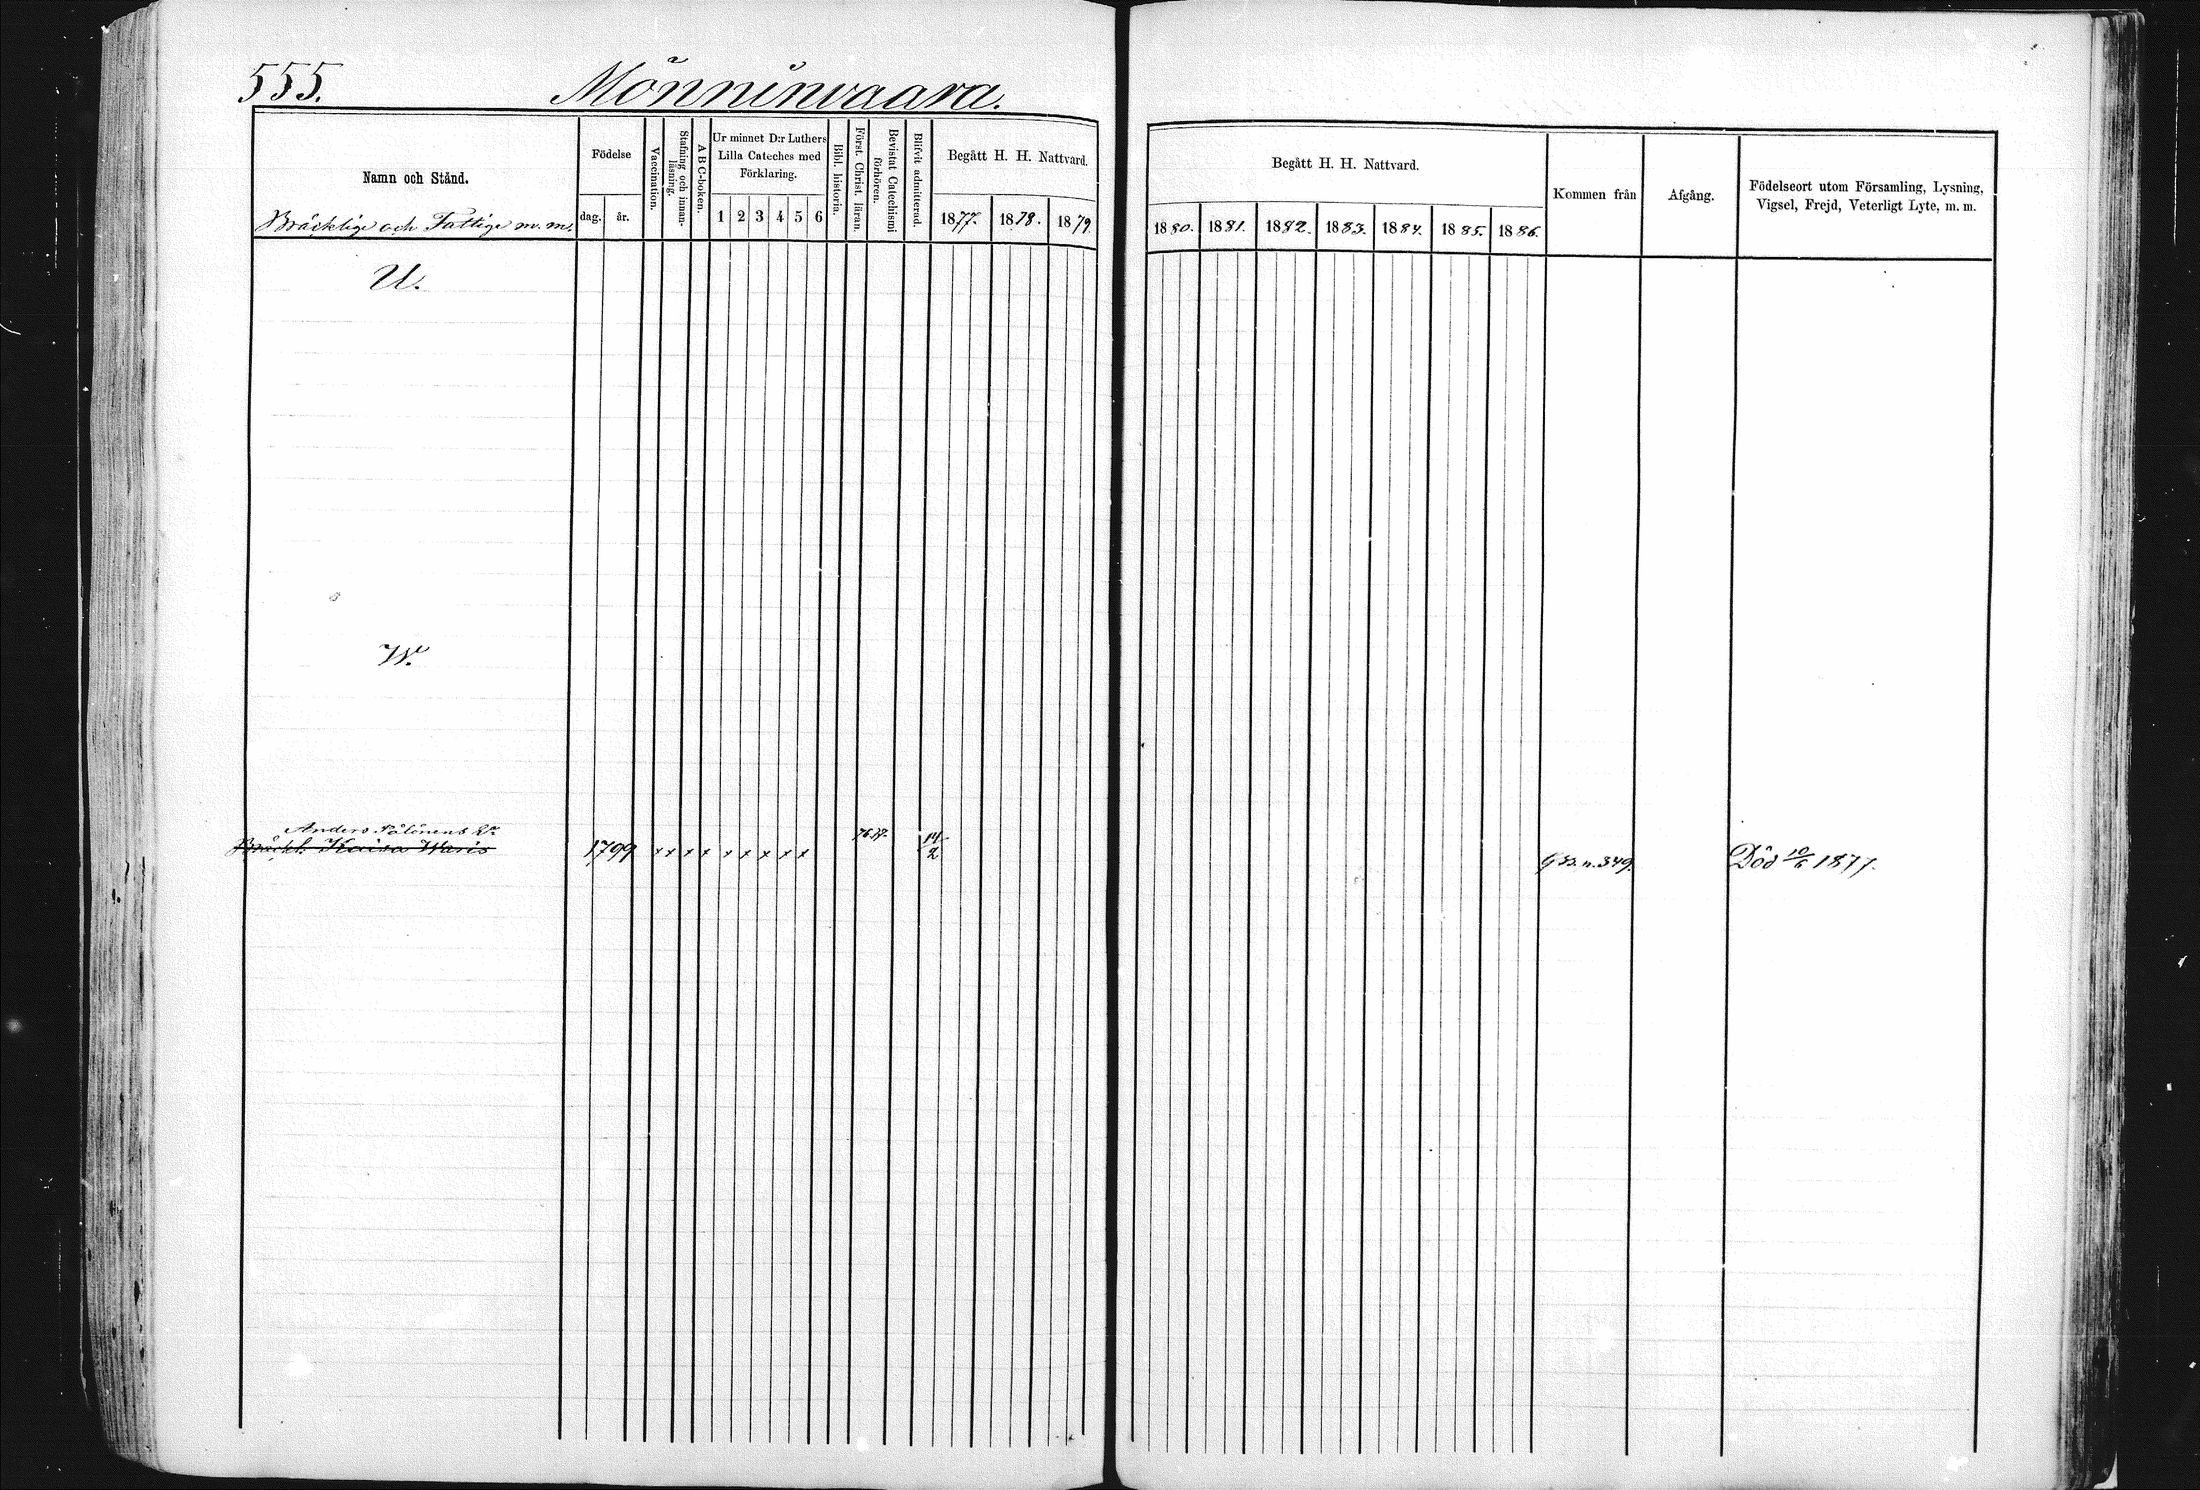 555. Mönninvaara.
Namn och Stånd.
Bräcklige och Fattige m. m.
Födelse
dag. år.
Vaccination.
Stafning och innan-
läsning.
A B C-boken.
Ur minnet D:r Luthers
Lilla Cateches med
Förklaring.
1 2 3 4 5 6
Bibl. historia.
Först. Christ. läran.
Bevistat Catechismi
förhören.
Blifvit admitterad.
Begått H. H. Nattvard.
1877. 1878. 1879.
Begått H. H. Nattvard.
1880. 1881. 1882. 1883. 1884. 1885. 1886.
Kommen från
Afgång.
Födelseort utom Församling, Lysning,
Vigsel, Frejd, Veterligt Lyte, m. m.
U.
W.
Anders
Bräckl. Kaisa Waris 1799 x x x x x x x x x 76.77. 14/2 G. B. n. 349. Död 10/6 1877.